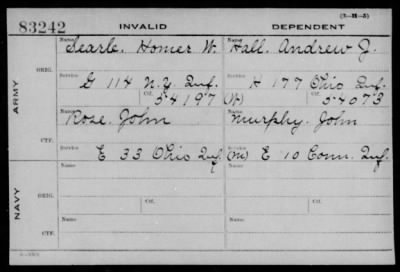 (3-H-5)
83242 INVALID DEPENDENT
Name Name
Searle, Homer W. Hall, Andrew J.
ORIG. Service Service
G 114 N.Y. Inf. K 177 Ohio Inf.
Ctf. 54197 (W) Ctf. 54073
ARMY
Name Name
Rose, John Murphy, John
CTF. Service Service
E 33 Ohio Inf (M) E 10 Conn. Inf.
Name Name
NAVY ORIG. Service Ctf. Service Ctf.
Name Name
CTF.